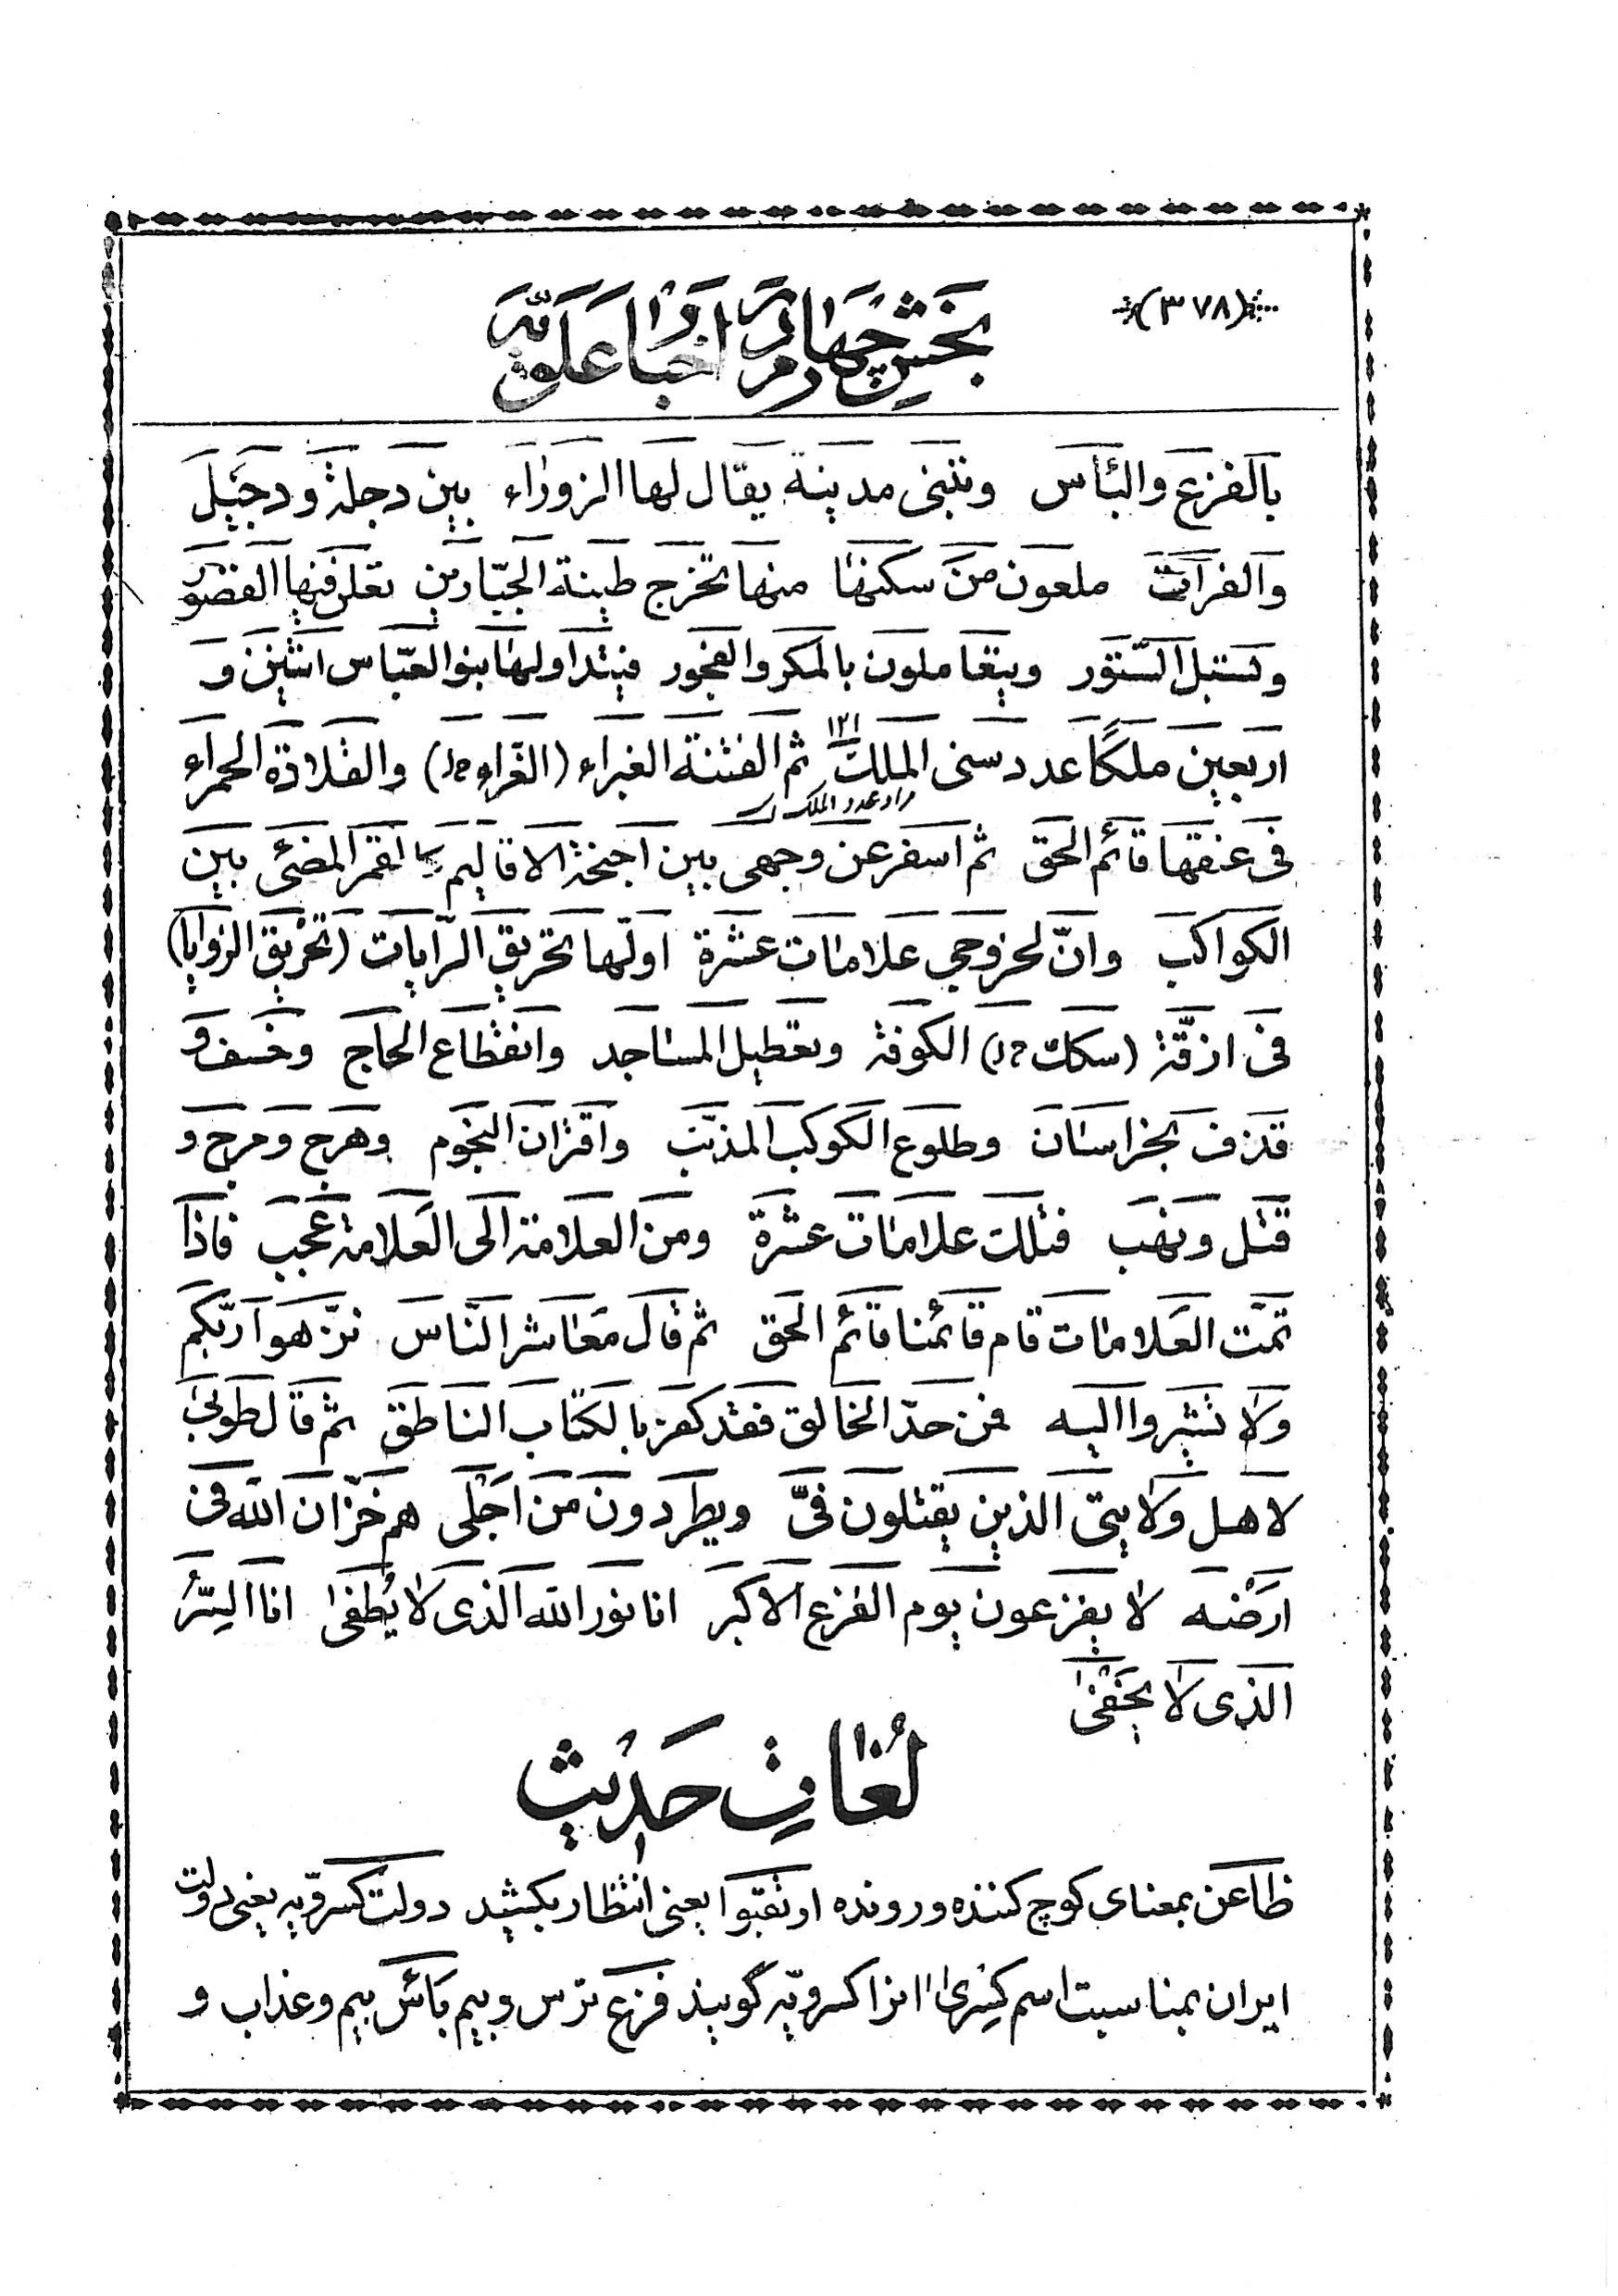 (٣٧٨)
بخش چهارم در اخبار علویه
بالفزع والبأس وتبنی مدینة یقال لها الزوراء بین دجلة و دجیل
والفرات ملعون من سکنها منها تخرج طینة الجبّارین تعلی فیها القصور
وتسبل الستور ویتعاملون بالمکر والفجور فیتداولها بنو العبّاس اثنین و
اربعین ملکاً عدد سنی الملک ثم الفتنة الغبراء (الغرّاء خل) والقلادة الحمراء
مراد عدد الملک
فی عنقها قائم الحق ثم اسفر عن وجهی بین اجنحة الاقالیم کالقمر المضئ بین
الکواکب وانّ لخروجی علامات عشرة اولّها تحریق الرّایات (تخریق الزوایا)
فی ازقّة (سکک خل) الکوفة وتعطیل المساجد وانقطاع الحاج وخسف و
قذف بخراسان وطلوع الکوکب المذنّب واقتران النجوم وهرج ومرج و
قتل ونهب فتلک علامات عشرة ومن العلامة الی العلامة عجب فاذا
تمّت العلامات قام قائمنا قائم الحق ثم قال معاشر النّاس نزّهوا ربّکم
ولا تشیروا الیه فمن حدّ الخالق فقد کفر بالکتاب الناطق ثم قال طوبی
لاهل ولایتی الذین یقتلون فیّ ویطردون من اجلی هم خزّان الله فی
ارضه لا یفزعون یوم الفزع الاکبر انا نور الله الذی لا یُطفی انا السِّرُّ
الذی لا یخفی
لُغات حدیث
ظاعن بمعنای کوچ کننده و رونده ارتقبوا یعنی انتظار بکشید دولت کسرویه یعنی دولت
ایران بمناسبت اسم کِسری انرا کسرویّه گویند فزع ترس و بیم بأس بیم و عذاب و